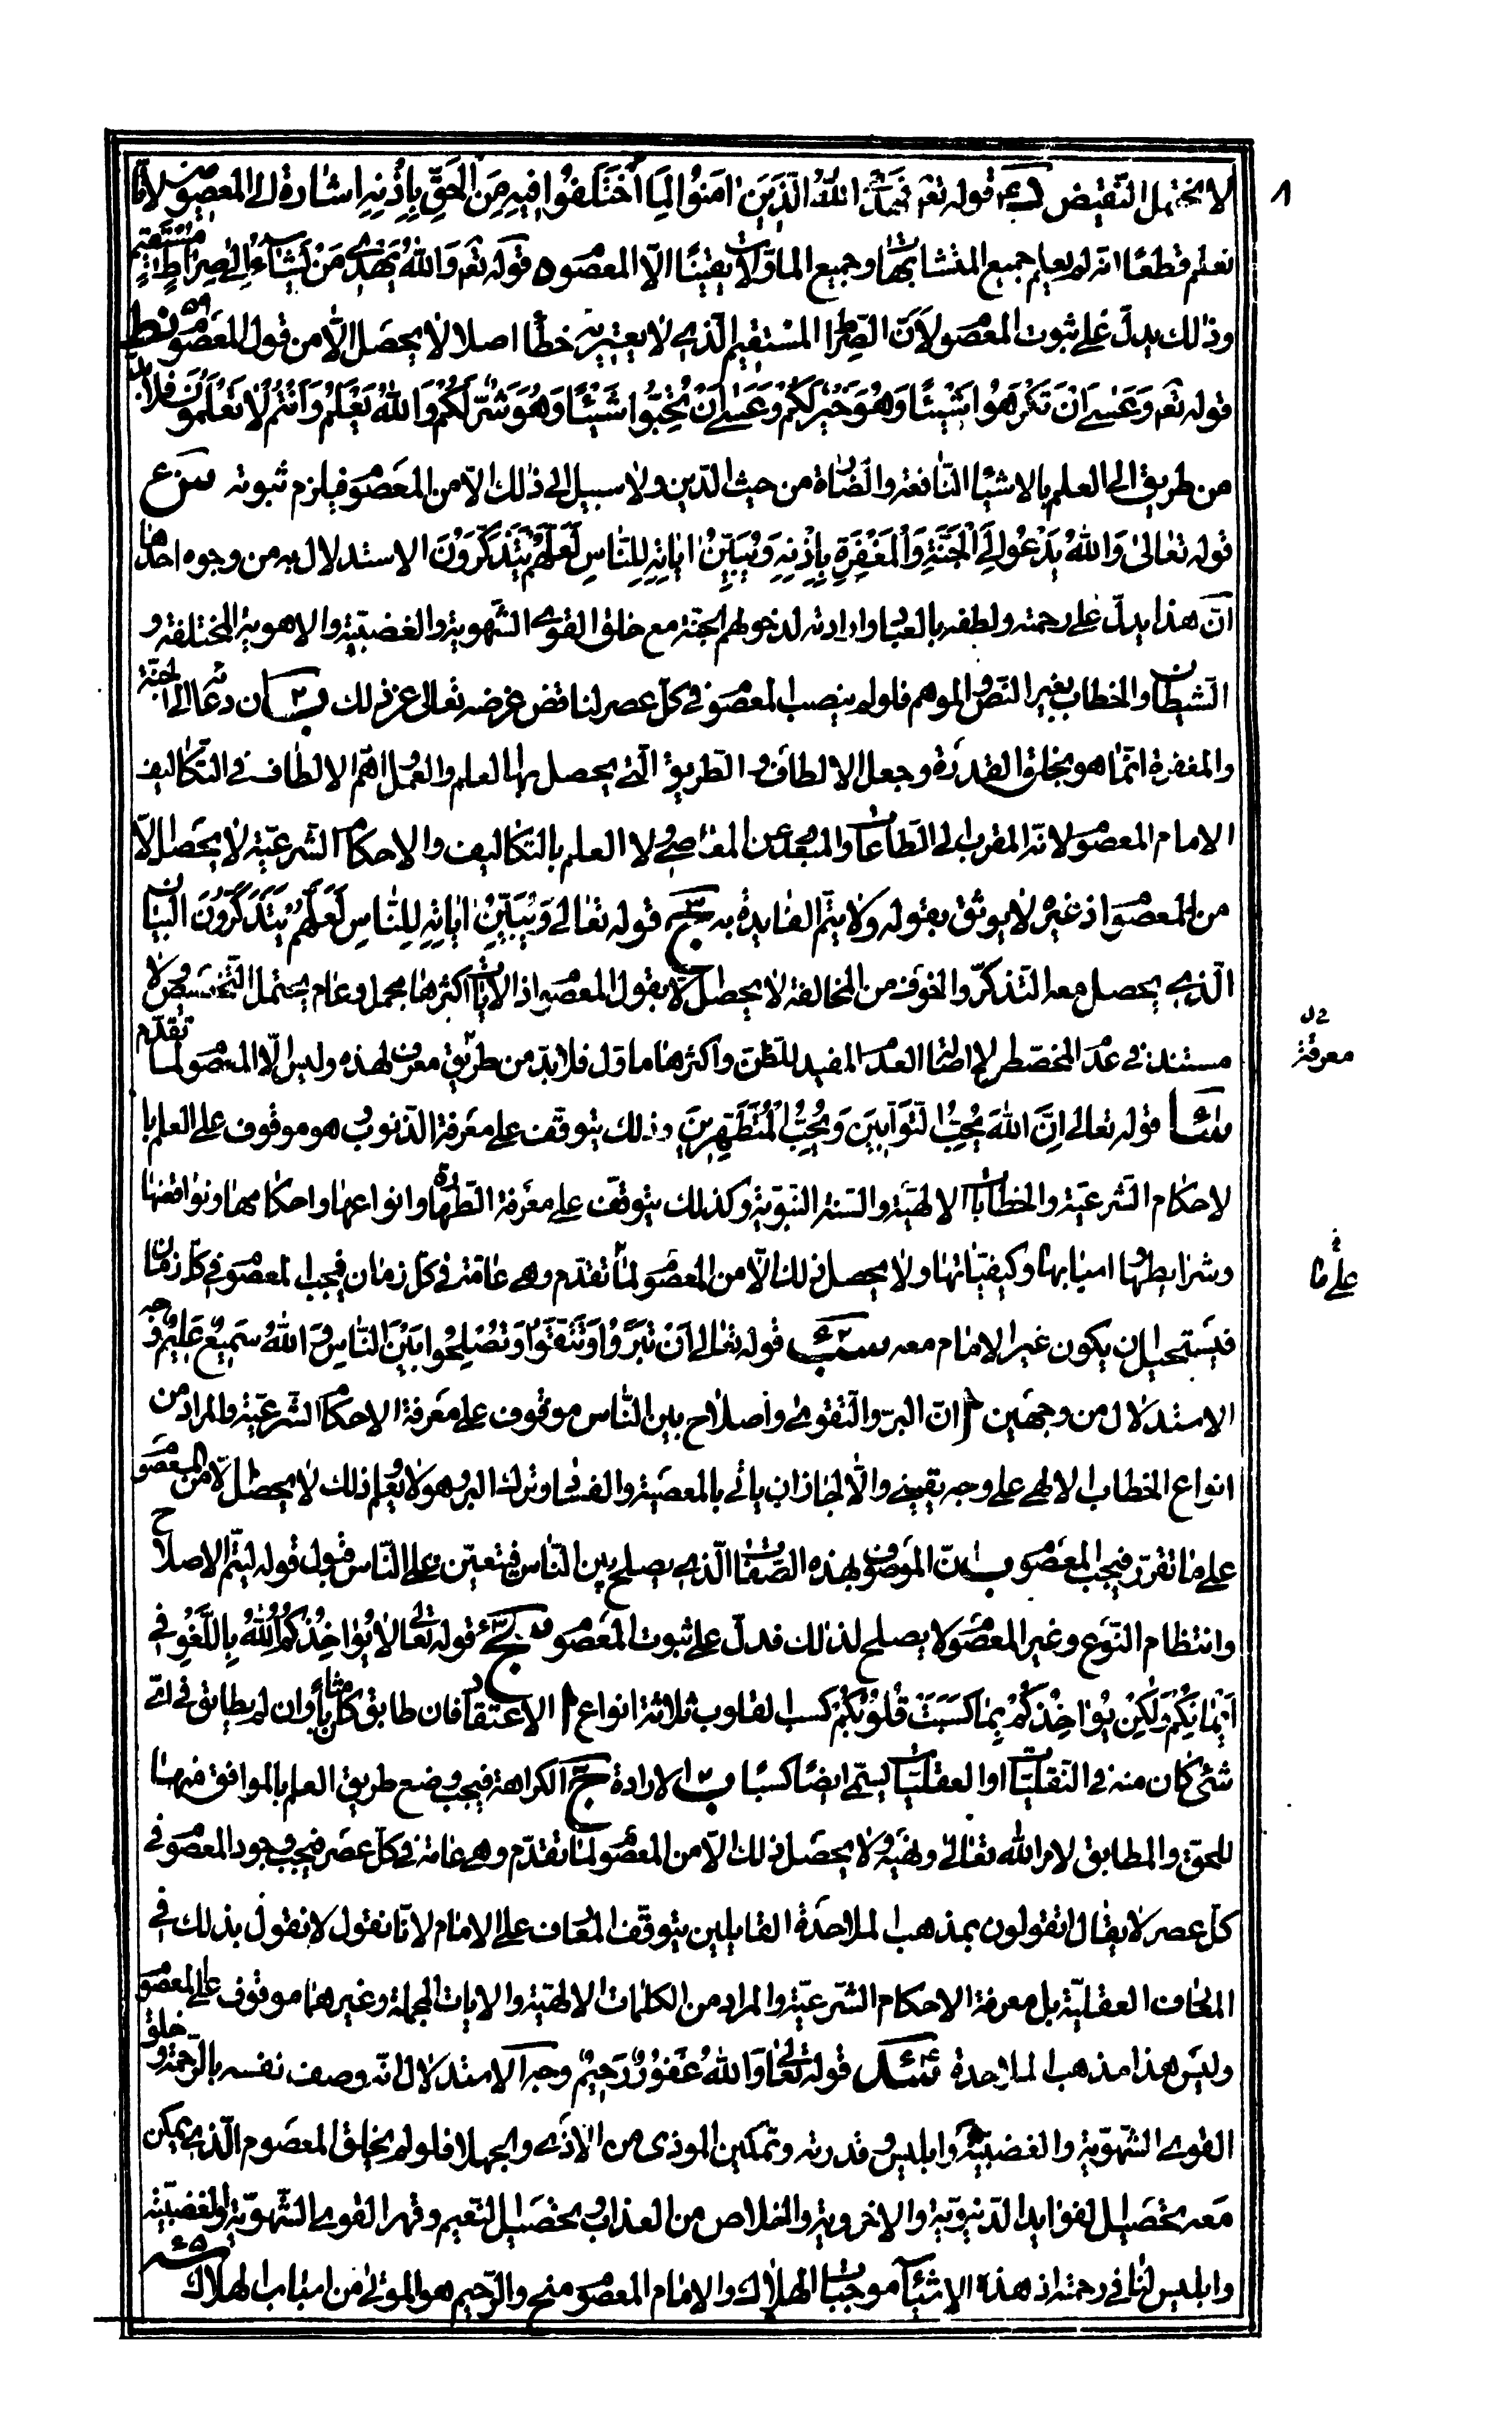 لا يحتمل النّقيض قوله تعم فهدى الله الّذين امنوا لما اختلفوا فيه من الحقّ بإذنه اشارة الى المعصوم لانّا
نعلم قطعًا انّه لم يعلم جميع المتشابهات وجميع المأوّلات يقينًا الّا المعصوم قوله تعم والله يهدى من يشاء الى صراط مستقيم
وذلك يدلّ على ثبوت المعصوم لانّ الصّراط المستقيم الّذى لا يعتريه خطأ اصلا لا يحصل الّا من قول المعصوم نط
قوله تعم وعسى ان تكرهوا شيئًا وهو خير لكم وعسى ان تحبّوا شيئًا وهو شرّ لكم والله يعلم وانتم لا تعلمون فلا بدّ
من طريق الى العلم بالاشياء النّافعة والضّارّة من حيث الدّين ولا سبيل الى ذلك الّا من المعصوم فيلزم ثبوته
قوله تعالى والله يدعو الى الجنّة والمغفرة بإذنه ويبيّن اياته للنّاس لعلّهم يتذكّرون الاستدلال به من وجوه احدها
انّ هذا يدلّ على رحمته ولطفه بالعباد وارادته لدخولهم الجنّة مع خلق القوى الشّهويّة والغضبيّة والاهوية المختلفة و
الشيطان والخطاب بغير النّصّ والموهم فلو لم ينصب المعصوم فى كلّ عصر لناقض غرضه تعالى عن ذلك ب ان دعائه الى الجنّة
والمغفرة انّما هو بخلق القدرة وجعل الالطاف و الطريق الّتى يحصل بها العلم والعمل اهمّ الالطاف فى التّكاليف
الامام المعصوم لانّه المقرب الى الطّاعات والمبعّد عن المعاصى ولا العلم بالتكاليف والاحكام الشّرعيّة لا يحصل الّا
من المعصوم اذ غيره لا يوثق بقوله ولا يتمّ الفايدة به ج قوله تعالى ويبيّن اياته للنّاس لعلّهم يتذكّرون البيان
الّذى يحصل معه التذكّر والخوف من المخالفة لا يحصل الّا بقول المعصوم اذ الايات اكثرها مجمل وعام يحتمل التّخصيص لا
مستند فى عدم المخصّص الّا اصالة العدم المفيد للظنّ واكثرها ماوّل فلا بدّ من طريق معرف لهذه وليس الّا المعصوم لما تقدّم
سا قوله تعالى انّ الله يحبّ التّوّابين ويحبّ المتطهّرين وذلك يتوقّف على معرفة الذّنوب هو موقوف على العلم با
لاحكام الشّرعيّة والخطابات الالهيّة والسّنّة النّبويّة وكذلك يتوقّف على معرفة الطّهارة وانواعها واحكامها ونواقضها
وشرايطها واسبابها وكيفيّاتها ولا يحصل ذلك الّا من المعصوم لما تقدّم وهى عامّة فى كلّ زمان فيجب المعصوم فى كلّ زمان
فيستحيل ان يكون غير الامام معه سب قوله تعالى ان تبرّوا وتتّقوا وتصلحوا بين النّاس والله سميع عليم وجه
الاستدلال من وجهين ا انّ البرّ والتّقوى واصلاح بين النّاس موقوف على معرفة الاحكام الشّرعيّة والمراد من
انواع الخطاب الالهى على وجه يقينى والّا لجاز ان ياتى بالمعصية والفساد وترك البرّ وهو لا يعلم ذلك لا يحصل الّا من المعصوم
على ما تقرّر فيجب المعصوم ب انّ الموصوف بهذه الصّفات الّذى يصلح بين النّاس فيتعيّن على النّاس قبول قوله ليتمّ الاصلاح
وانتظام النّوع وغير المعصوم لا يصلح لذلك فدلّ على ثبوت المعصوم سج قوله تعالى لا يؤاخذكم الله باللّغو فى
ايمانكم ولكن يؤاخذكم بما كسبت قلوبكم كسب القلوب ثلاثة انواع ا الاعتقاد فان طابق كان مثابا وان لم يطابق فى اىّ
شئ كان منه فى النقليّات او العقليّات ليتمّ ايضًا كسبًا ب الارادة ج الكراهة فيجب وضع طريق العلم بالموافق منها
للحق والمطابق لامر الله تعالى ونهيه ولا يحصل ذلك الّا من المعصوم لما تقدّم وهى عامّة فى كلّ عصر فيجب وجود المعصوم فى
كلّ عصر لا يقال اتقولون بمذهب الملاحدة القايلين بتوقّف المعارف على الامام لانّا نقول لا نقول بذلك فى
المعارف العقليّة بل معرفة الاحكام الشّرعيّة والمراد من الكلمات الالهيّة والايات المجملة وغيرها موقوف على المعصوم
وليس هذا مذهب الملاحدة سد قوله تعالى والله غفور رحيم وجه الاستدلال انّه وصف نفسه بالرّحمة و خلق
القوى الشّهويّة والغضبيّة وابليس وقدرته وتمكين الموذى من الاذى والجهل فلو لم يخلق المعصوم الّذى يمكن
معه تحصيل الفوايد الدّنيويّة والاخرويّة والخلاص من العذاب وتحصيل النّعيم وقهر القوى الشّهويّة والغضبيّة
وابليس لنافى رحمته اذ هذه الاشياء موجبات الهلاك والامام المعصوم منج والرّحيم هو الموقى من اسباب الهلاك
معرفة
على ما